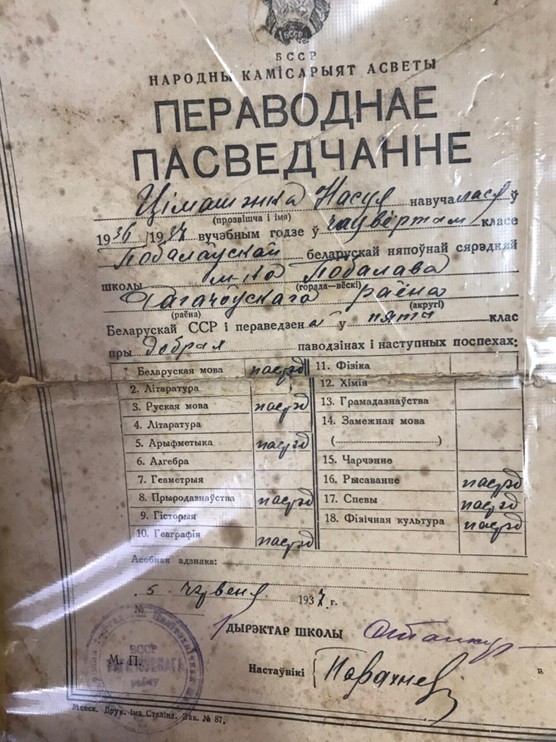 БССР
БССР
НАРОДНЫ КАМІСАРЫЯТ АСВЕТЫ
ПЕРАВОДНАЕ
ПАСВЕДЧАННЕ
Цімашкка Насця навучалася ў
(прозвішча і імя)
1936/1937 вучэбным годзе ў чацвёртам класе
Побалаўскай беларускай няпоўнай сярэдняй
школы м-ка Побалава
(горада—вёскі)
Рагачоўскага раёна
(раёна) (акругі)
Беларускай ССР і переведзена ў пяты клас
пры добрых паводзінах і наступных поспехах:
1. Беларуская мова пасрэд
2. Літаратура
3. Руская мова пасрэд
4. Літаратура
5. Арыфметыка пасрэд
6. Алгебра
7. Геаметрыя
8. Прыродазнаўства пасрэд
9. Гісторыя
10. Геаграфія пасрэд
11. Фізіка
12. Хімія
13. Грамадазнаўства
14. Замежная мова
(                    )
15. Чарчэнне
16. Рысаванне пасрэд
17. Спевы пасрэд
18. Фізічная культура пасрэд
Асобная адзнака:
5 чэрвеня 1937 г.
№
ДЫРЭКТАР ШКОЛЫ
БССР
М. П.
Настаўнікі
Менск. Друк. імя Сталіна. Зак. № 87.